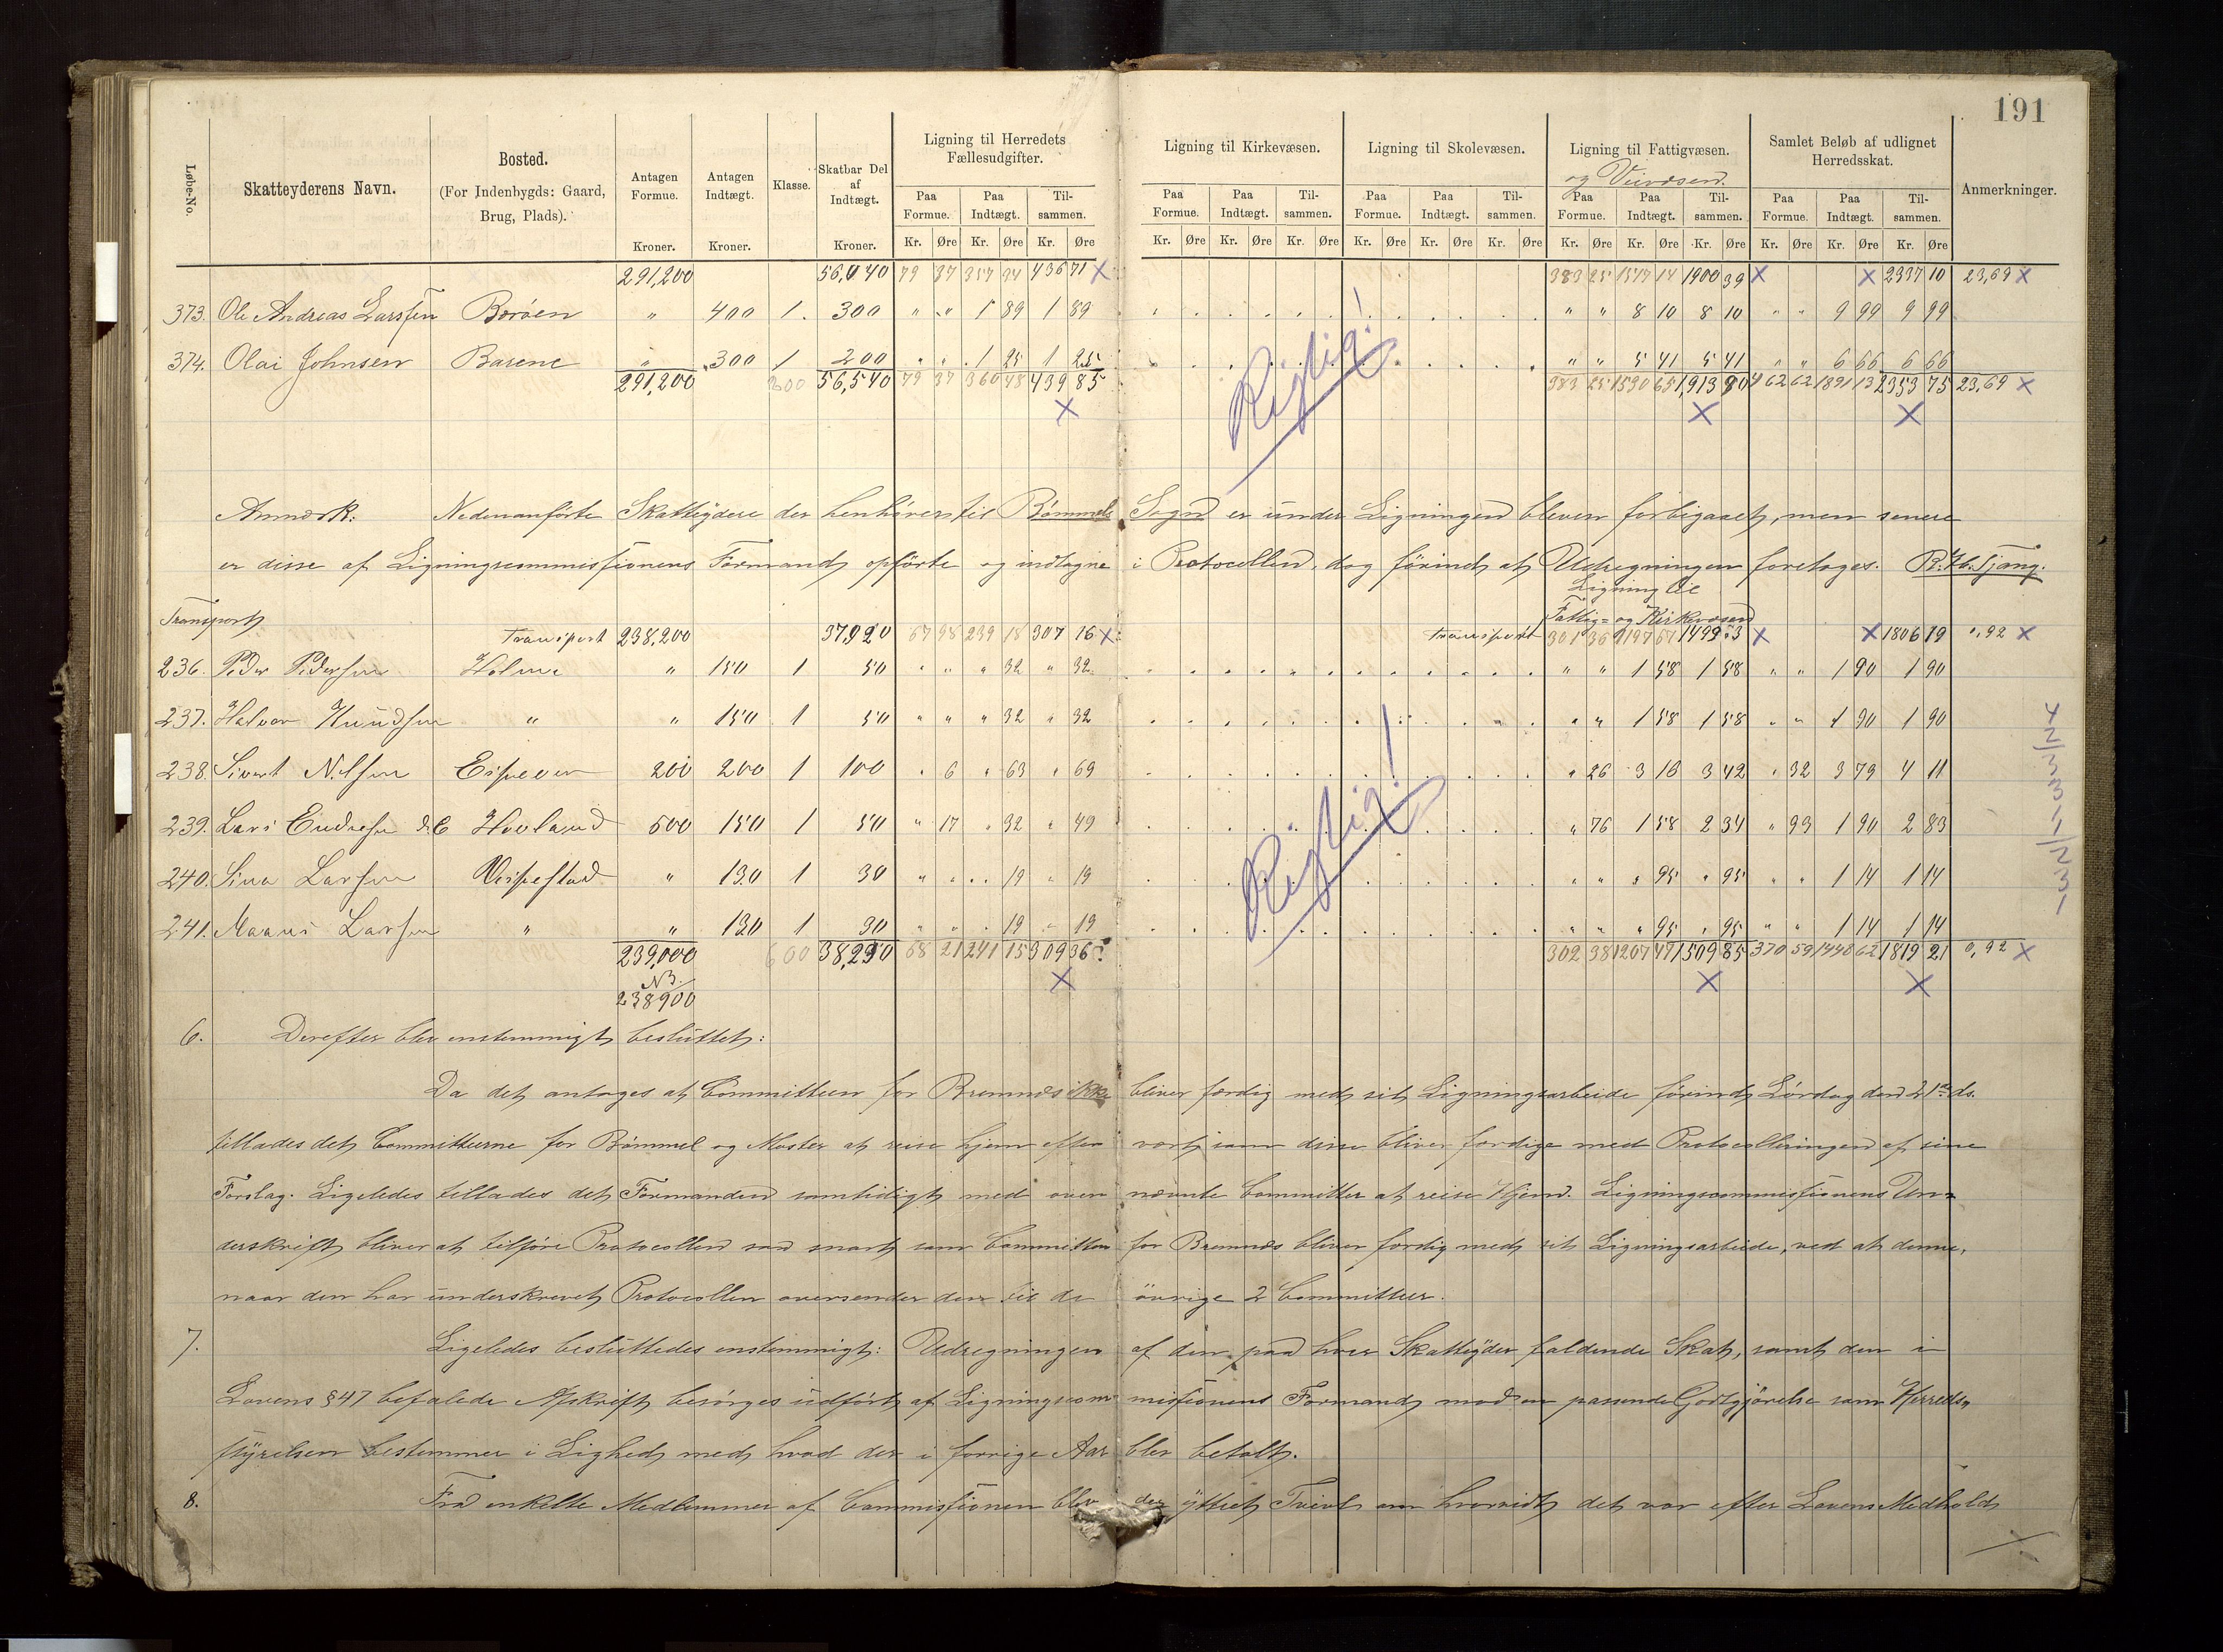 191
Løbe-No. Skatteyderens Navn. Bosted. (For Indenbygds: Gaard, Brug, Plads). Antagen Formue. Kroner. Antagen Indtægt. Kroner. Klasse. Skatbar Del af Indtægt. Kroner. Ligning til Herredets Fællesudgifter. Ligning til Kirkevæsen. Ligning til Skolevæsen. Ligning til Fattigvæsen. og Veivæsen. Samlet Beløb af udlignet Herredsskat. Anmerkninger.
Paa Formue. Paa Indtægt. Tilsammen. Paa Formue. Paa Indtægt. Tilsammen. Paa Formue. Paa Indtægt. Tilsammen. Paa Formue. Paa Indtægt. Tilsammen. Paa Formue. Paa Indtægt. Tilsammen.
Kr. Øre Kr. Øre Kr. Øre Kr. Øre Kr. Øre Kr. Øre Kr. Øre Kr. Øre Kr. Øre Kr. Øre Kr. Øre Kr. Øre Kr. Øre Kr. Øre Kr. Øre
291,200 56,040 79 37 357 34 436 71 X 383 25 1517 14 1900 39 X X 2337 10 23,69 X
373. Ole Andreas Larssen Børøen " 400 1. 300 " " 1 89 1 89 " " 8 10 8 10 " " 9 99 9 99
374. Olai Johnsen Barene " 300 1 200 " " 1 25 1 25 " " 5 41 5 41 " " 6 66 6 66
291,200 56,540 79 37 360 48 439 85 383 25 1530 65 1,913 90 462 62 1891 13 2353 75 23,69 X
X X X
Rigtig!
Anmærk: Nedenanførte Skatteÿdere der henhører til Bømmels Sogn er under Ligningen bleven forbigaaet, men senere
er disse af Ligningscommissionens Formand opførte og indtagne i Protocollen, dog førind at Udregningen foretages.
Ligning til
Fattig- og Kirkevæsen
Transport Transport 238,200 37,920 67 98 239 18 307 16 X Transport 301 36 1197 67 1499 03 X X 1806 19 0,92 X
236. Peder Pedersen Holme " 150 1 50 " " " 32 " 32 " " 1 58 1 58 " " 1 90 1 90
237. Halvor Knudsen " " 150 1 50 " " " 32 " 32 " " 1 58 1 58 " " 1 90 1 90
238. Sivert Nilsen Espever 200 200 1 100 " 6 " 63 " 69 " 26 3 16 3 42 " 32 3 79 4 11
239. Lars Endresen Hovland 500 150 1 50 " 17 " 32 " 49 " 76 1 58 2 34 " 93 1 90 2 83
240. Sina Larsen Vespestad " 130 1 30 " " " 19 " 19 " " " 95 " 95 " " 1 14 1 14
241. Maans Larsen " " 130 1 30 " " " 19 " 19 " " " 95 " 95 " " 1 14 1 14
239,000 38,230 68 21 241 15 309 36 302 38 1207 47 1509 85 370 59 1448 62 1819 21 0,92 X
NB.
238900 X X X
Rigtig!
6. Derefter blev enstemmigt besluttet:
Da det antages at Committeen for Bremnæs ikke bliver færdig med sit Ligningsarbeide førind Lørdag den 21de ds.
tillades det Committeerne for Bømmel og Moster at reise hjem efter vart som disse bliver færdige med Protocolleringen af sine
Forslag. Ligeledes tillades det Formanden samtidigt med oven nævnte Committer at reise Hjem. Ligningscommissionens Un-
derskrift bliver at tilføre Protocollen saa snart som Committeen for Bremnæs bliver færdig med sit Ligningsarbeide, ved at denne,
naar den har underskrevet Protocollen oversender den til de øvrige 2 Committeer.
7. Ligeledes besluttedes enstemmigt: Udregningen af den paa hver Skatteÿder faldende Skat, samt den i
Lovens §47 befalede Afskrift besørges udført af Ligningscommissionens Formand mod en passende Godtgjørelse som Herreds-
styrelsen bestemmer i Lighed med hvad der i forrige Aar blev betalt.
8. Fra enkelte Medlemmer af Commissionen blev der ÿttret Tvivl om hvorvidt det var efter Lovens Medhold